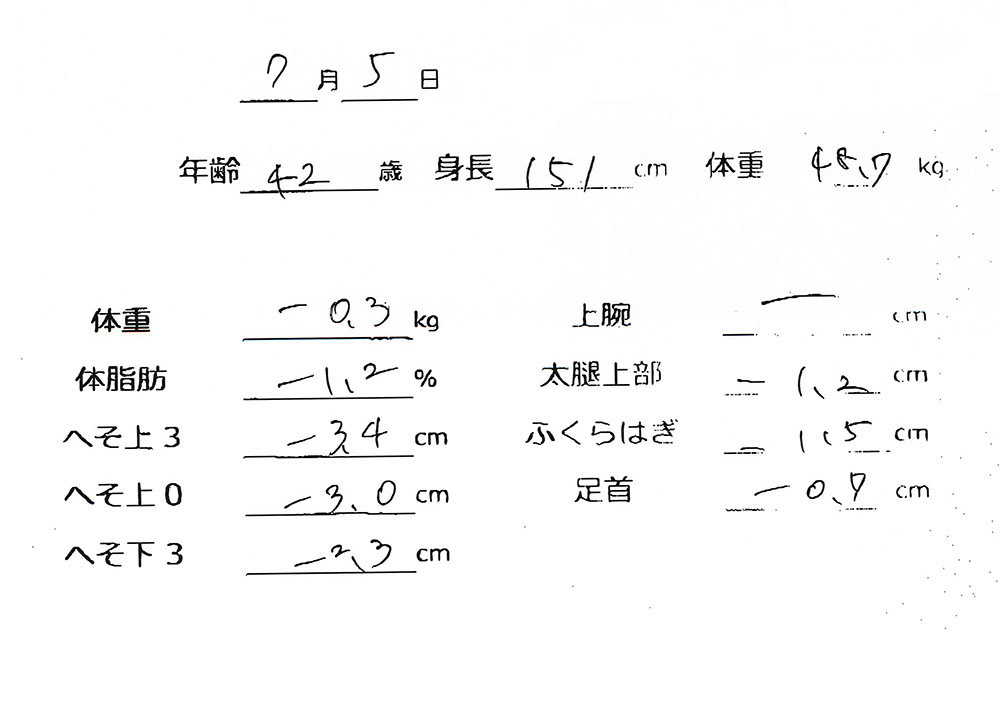 7月5日
年齢 42 歳 身長 151 cm 体重 48.7 kg
体重 -0.3 kg 上腕 — cm
体脂肪 -1.2 % 太腿上部 -1.2 cm
へそ上3 -3.4 cm ふくらはぎ -1.5 cm
へそ上0 -3.0 cm 足首 -0.7 cm
へそ下3 -2.3 cm